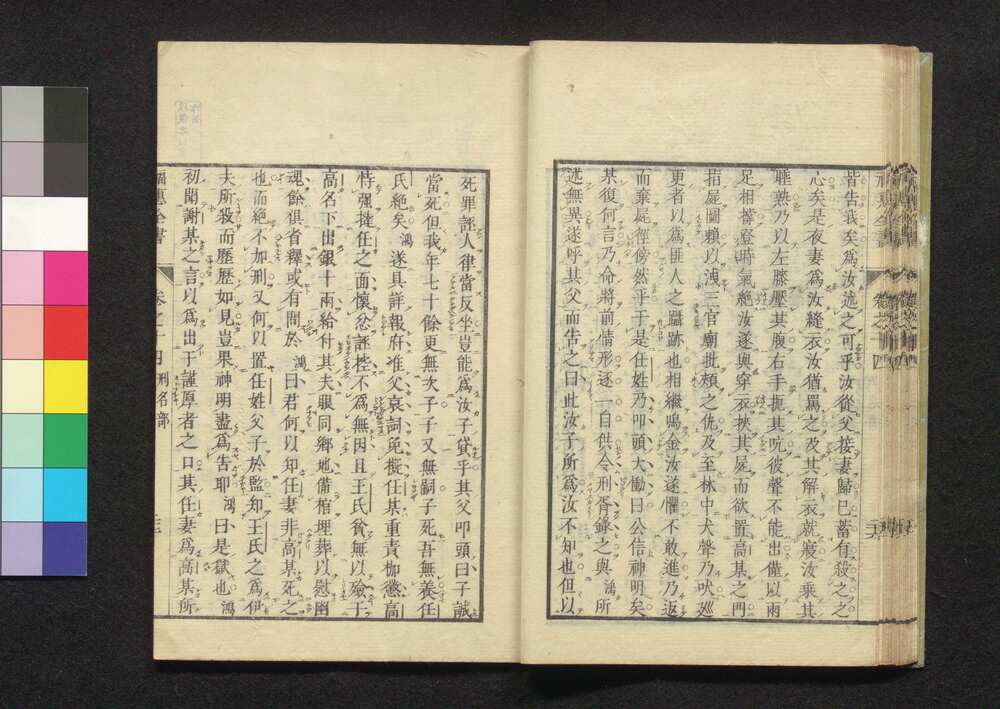 皆告我矣爲汝述之可乎汝從父接妻歸已蓄有殺之之
心矣是夜妻爲汝縫衣汝猶罵之及其解衣就寢汝乘其
睡熟乃以左膝壓其腹右手扼其吭彼聲不能出僅以兩
足相撐登時氣絕汝遂與穿衣挾其屍而欲置高某之門
指屍圖賴以洩三官廟批頰之仇及至林中犬聲乃吠廵
更者以爲匪人之躡跡也相繼鳴金汝遂懼不敢進乃返
而棄屍徑傍然乎于是任姓乃叩頭大慟曰公信神明矣
某復何言乃命將前情形逐一自供令刑胥錄之與鴻所
述無異遂呼其父而告之曰此汝子所爲汝不知也但以
死罪誣人律當反坐豈能爲汝子貸乎其父叩頭曰子誠
當死但我年七十餘更無次子子又無嗣子死吾無養任
氏絕矣鴻遂具詳報府准父哀詞免擬任某重責枷懲高
恃强撻任之面懷忿誣控不爲無因且王氏貧無以殮于
高名下出銀十兩給付其夫眼同鄉地備棺埋葬以慰幽
魂餘俱省釋或有問於鴻曰君何以知任妻非高某死之
也而絕不加刑又何以置任姓父子於監知王氏之爲伊
夫所殺而歷歷如見豈果神明盡爲告耶鴻曰是獄也鴻
初聞謝某之言以爲出于謹厚者之口其任妻爲高某所
福惠全書 卷之十四 刑名部